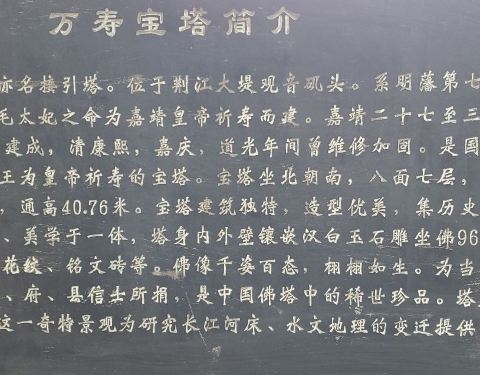 万寿宝塔简介
亦名接引塔。位于荆江大堤观音矶头。系明藩第七
毛太妃之命为嘉靖皇帝祈寿而建。嘉靖二十七至三
建成,清康熙,嘉庆,道光年间曾维修加固。是国
王为皇帝祈寿的宝塔。宝塔坐北朝南,八面七层,
,通高40.76米。宝塔建筑独特,造型优美,集历史
、美学于一体,塔身内外壁镶嵌汉白玉石雕坐佛96
花纹、铭文砖等。佛像千姿百态,栩栩如生。为当
、府、县信士所捐,是中国佛塔中的稀世珍品。塔
这一奇特景观为研究长江河床、水文地理的变迁提供